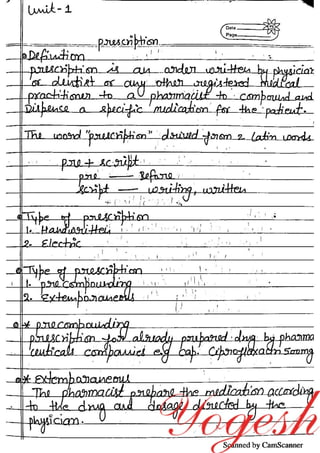 Unit-1
Date
Page
prescription
Definition
prescription is an order written by physician
or dentist or any other registered medical
practitioner to a pharmacist to compound and
Dispense a specific medication for the patient.
The word "prescription" drived from 2 latin words
pre + script
pre — Before
script — writing, written
Type of prescription
1. Handwritten
2. Electric
Type of prescription
1. precompounding
2. Extemporaneous
* precompounding
prescription for already prepared drug by pharma
ceuticals companies e.g cap. Ciprofloxacin 500mg
* Extemporaneous
The pharmacist prepare the medication according
to the drug and dosage directed by the
physician.
Yogesh
Scanned by CamScanner